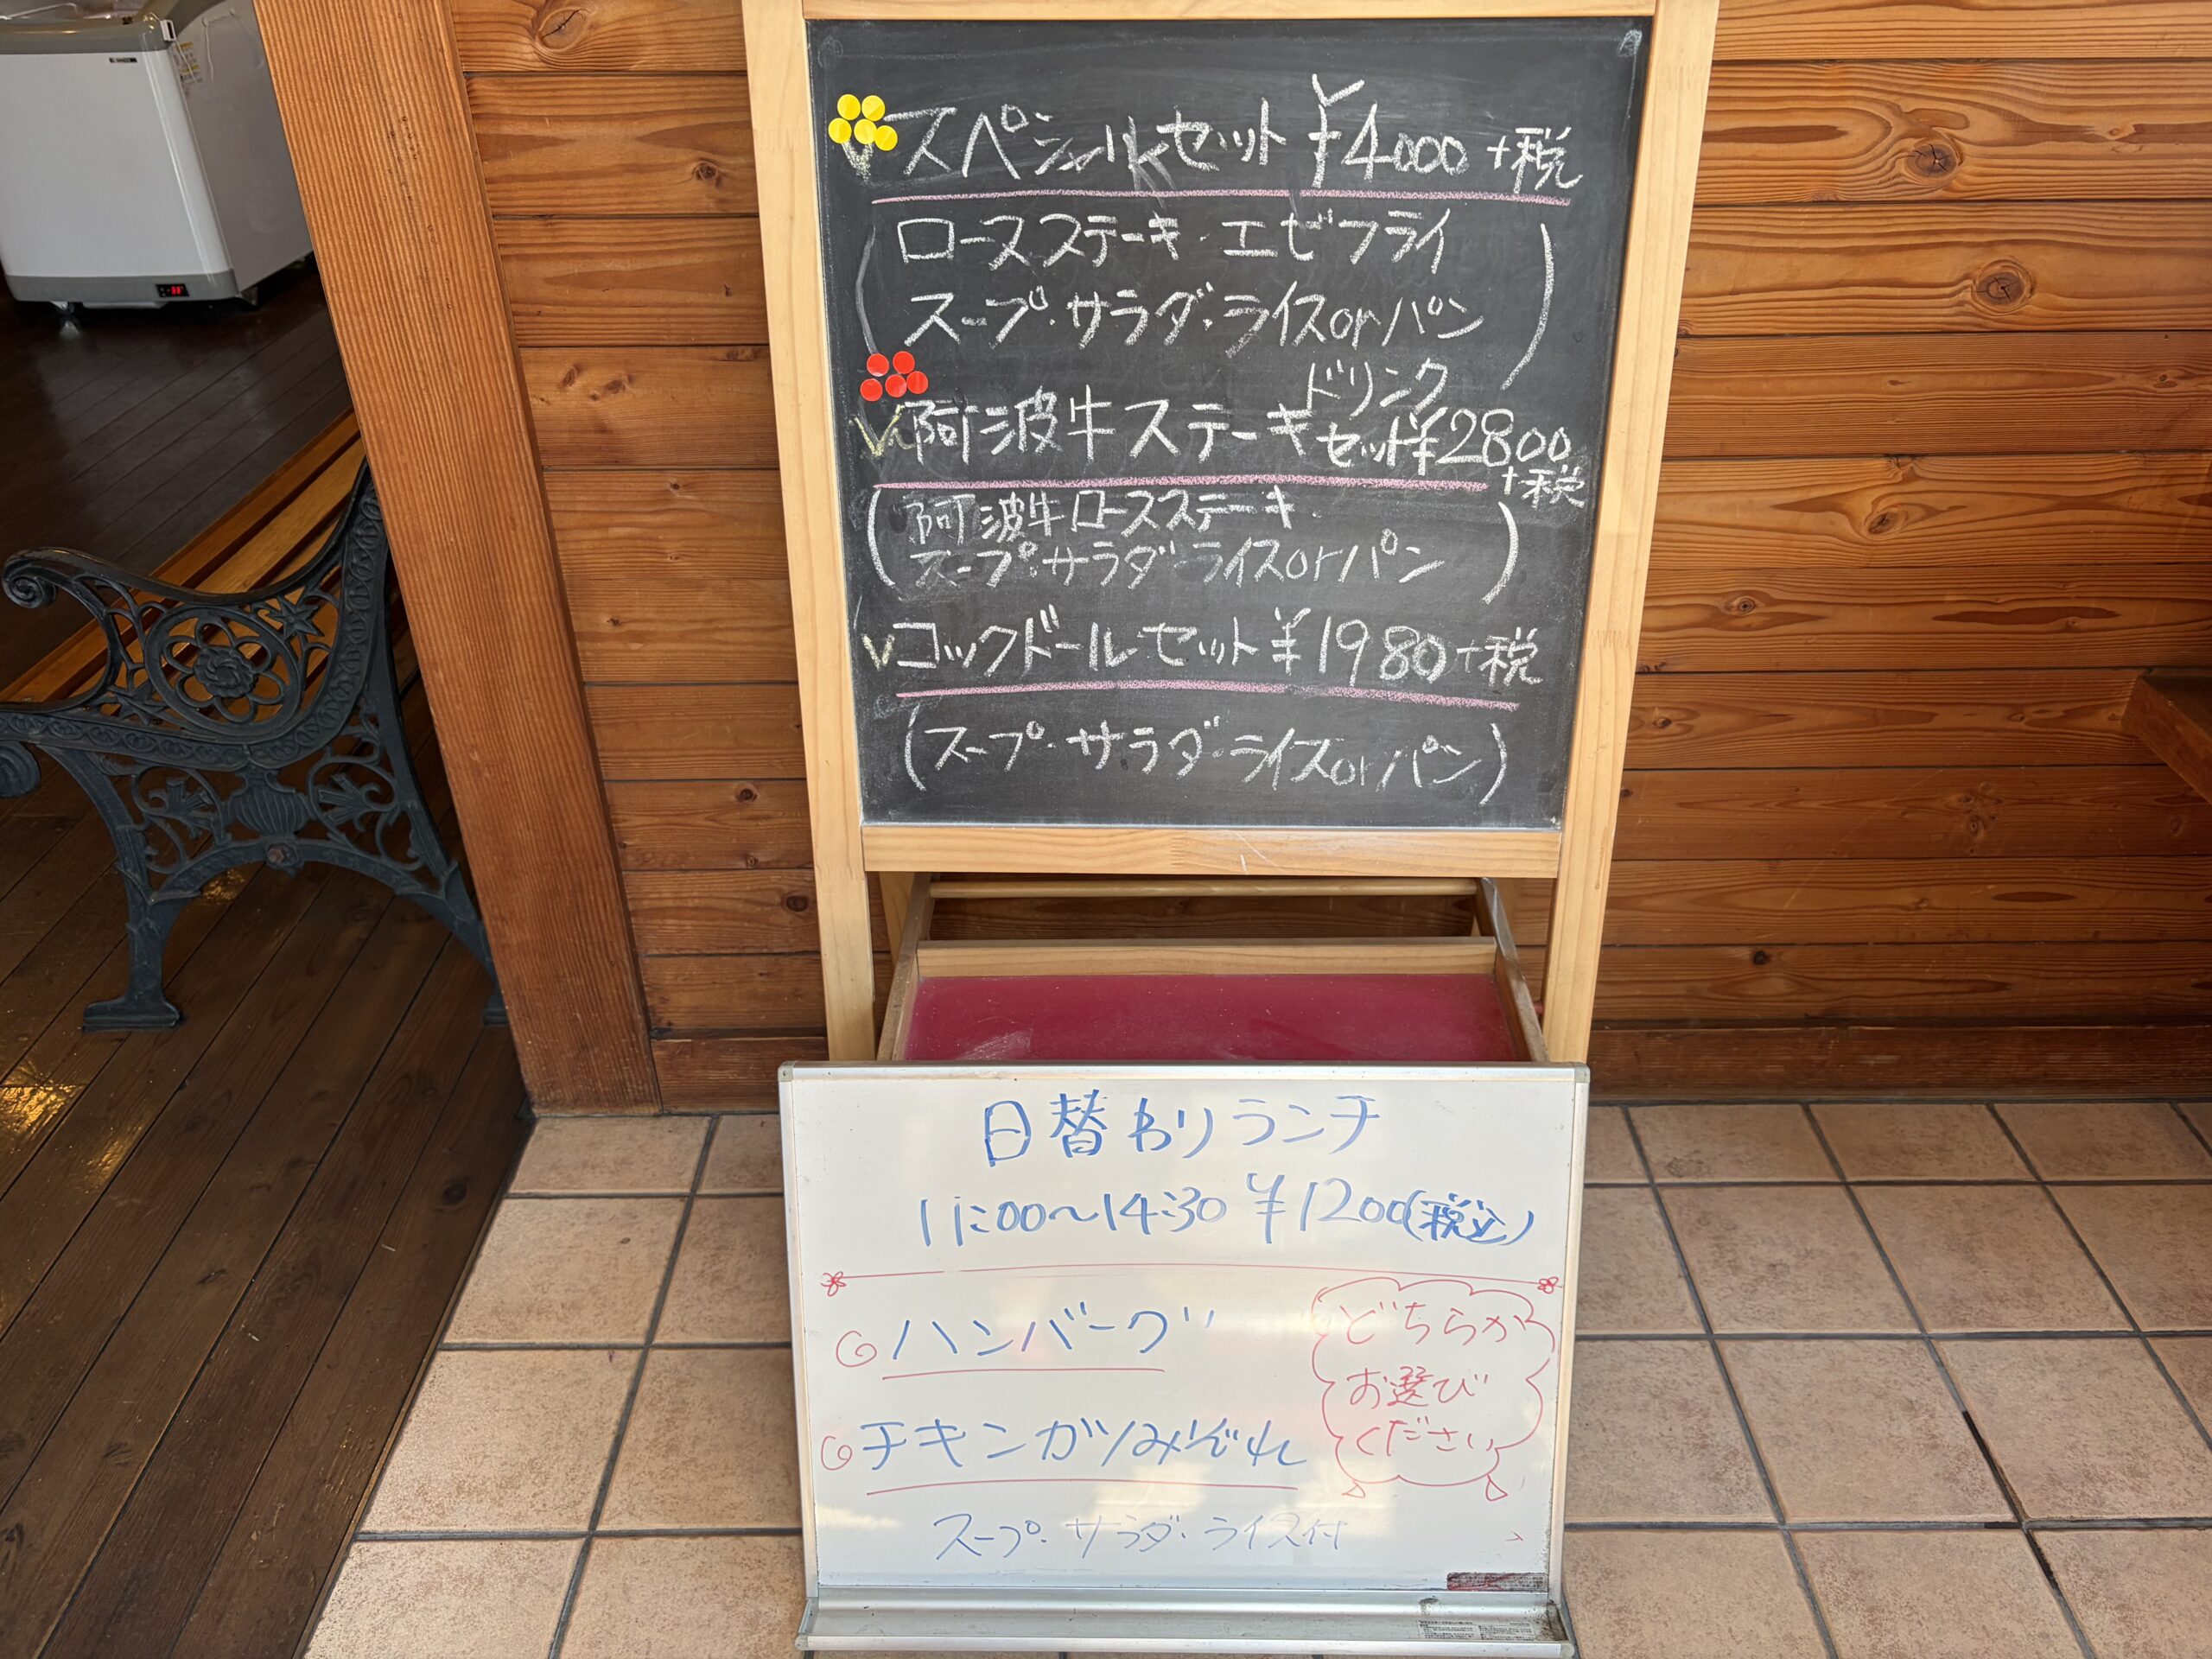 スペシャルセット ¥4000+税
ロースステーキ・エビフライ
スープ・サラダ・ライスorパン
阿波牛ステーキドリンクセット¥2800+税
阿波牛ロースステーキ
スープ・サラダ・ライスorパン
コックドールセット¥1980+税
(スープ・サラダ・ライスorパン)
日替わりランチ
11:00~14:30 ¥1200(税込)
ハンバーグ
チキンカツみぞれ
どちらか
お選び
ください
スープ・サラダ・ライス付